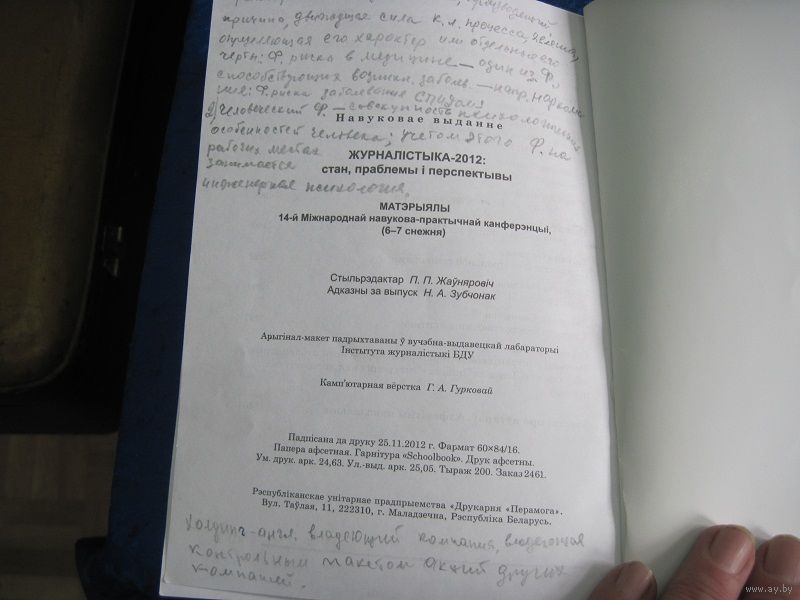 причина, движущая сила к.л. процесса, явления,
определяющая его характер или отдельные его
черты: Ф. риска в медицине — один из Ф.,
способствующих возникн. заболев. — напр. наркома-
ния: Ф. риска заболевания СПИДом
2) Человеческий Ф. — совокупность психологических
Навуковае выданне
особенностей человека; учетом этого Ф. на
рабочих местах
ЖУРНАЛІСТЫКА-2012:
занимается
стан, праблемы і перспектывы
инженерная психология.
МАТЭРЫЯЛЫ
14-й Міжнароднай навукова-практычнай канферэнцыі,
(6–7 снежня)
Стыльрэдактар П. П. Жаўняровіч
Адказны за выпуск Н. А. Зубчонак
Арыгінал-макет падрыхтаваны ў вучэбна-выдавецкай лабараторыі
Інстытута журналістыкі БДУ
Камп'ютарная вёрстка Г. А. Гурковай
Падпісана да друку 25.11.2012 г. Фармат 60×84/16.
Папера афсетная. Гарнітура «Schoolbook». Друк афсетны.
Ум. друк. арк. 24,63. Ул.-выд. арк. 25,05. Тыраж 200. Заказ 2461.
Рэспубліканскае унітарнае прадпрыемства «Друкарня «Перамога».
Вул. Таўлая, 11, 222310, г. Маладзечна, Рэспубліка Беларусь.
Холдинг-англ. владеющий компания, владеющая
контрольным пакетом акций других
компаний.
www.ay.by